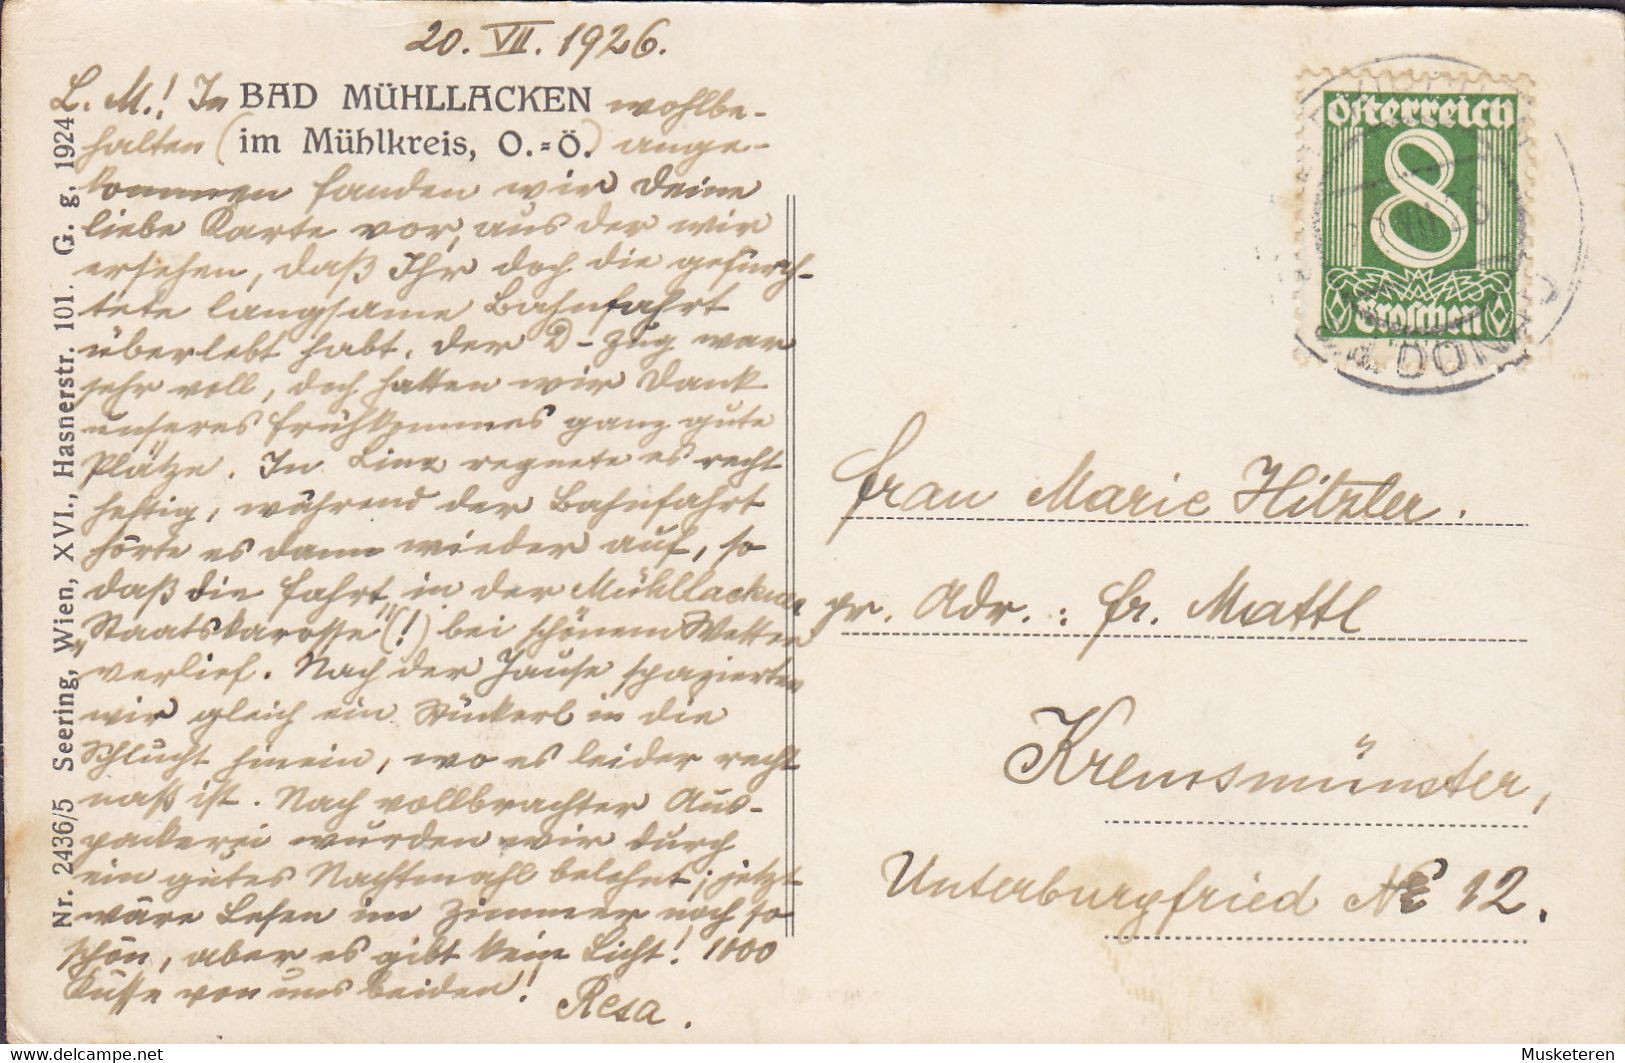 20. VII. 1926.
L. M.! In BAD MÜHLLACKEN wohlbe-
halten (im Mühlkreis, O.=Ö.) ange-
kommen fanden wir Deine
liebe Karte vor, aus der wir
ersehen, daß Ihr doch die gefürch-
tete langsame Bahnfahrt
überlebt habt. Der D-Zug war
sehr voll, doch hatten wir Dank
unseres Frühkommens ganz gute
Plätze. In Linz regnete es recht
heftig, während der Bahnfahrt
hörte es dann wieder auf, so
daß die Fahrt in der Mühllackner
„Staatskarosse" (!) bei schönem Wetter
verlief. Nach der Jause spazierten
wir gleich ein Stückerl in die
Schlucht hinein, wo es leider recht
naß ist. Nach vollbrachter Aus-
packerei wurden wir durch
ein gutes Nachtmahl belohnt; jetzt
wäre Lesen im Zimmer noch so
schön, aber es gibt kein Licht! 1000
Küsse von uns beiden!
Resa.
Nr. 2436/5 Seering, Wien, XVI., Hasnerstr. 101. G. g. 1924
Österreich
8
Groschen
a.d. DONAU
Frau Marie Hitzler.
pr. Adr.: Fr. Mattl
Kremsmünster,
Unterburgfried № 12.
delcampe.net
Musketeren